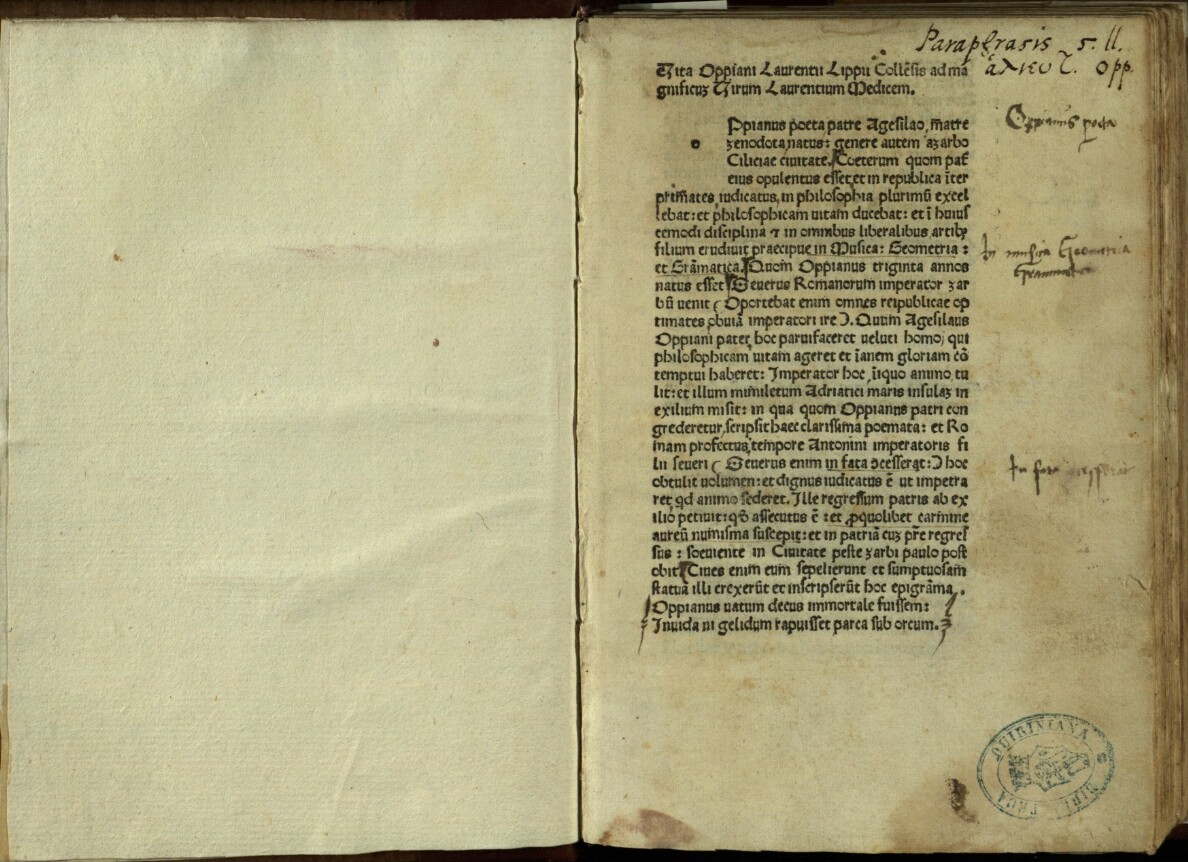 Paraphrasis s. ll.
ἁλιευτ. Opp.
Vita Oppiani Laurentii Lippii Collēsis ad ma
gnificuꝫ Virum Laurentium Medicem.
Oppianus poeta
o
Ppianus poeta patre Agesilao, m̄atre
zenodota natus: genere autem aꝫarbo
Ciliciae ciuitate. Coeterum quom pať
eius opulentus esset et in republica īter
primates iudicatus, in philosophia plurimū excel
lebat: et philosophicam uitam ducebat: et ī huius
cemodi disciplina ⁊ in omnibus liberalibus artibꝫ
filium erudiuit praecipue in Musica: Geometria:
et Grāmatica. Quom Oppianus triginta annos
In musica Geometria
Grammatica
natus esset Seuerus Romanorum imperator ꝫar
bū uenit ( Oportebat enim omnes reipublicae op
timates obuiā imperatori ire ). Quum Agesilaus
Oppiani pater hoc paruifaceret ueluti homo, qui
philosophicam uitam ageret et īanem gloriam cō
temptui haberet: Imperator hoc īiquo animo tu
lit: et illum mimiletum Adriatici maris insulaꝫ in
exilium misit: in qua quom Oppianus patri con
grederetur, scripsit haec clarissima poemata: et Ro
mam profectus tempore Antonini imperatoris fi
lii seueri ( Seuerus enim in fata ɔcesserat: ) hoc
In fata
obtulit uolumen: et dignus iudicatus ē ut impetra
ret qd animo sederet. Ille regressum patris ab ex
ilio petiuit: qđ assecutus ē: et ꝓquolibet carmine
aureū numisma suscepit: et in patriā cuꝫ p̄re regres
sus: soeuiente in Ciuitate peste ꝫarbi paulo post
obit. Ciues enim eum sepelierunt et sumptuosam
statuā illi erexerūt et inscripserūt hoc epigrāma.
Oppianus uatum decus immortale fuissem:
Inuida ni gelidum rapuisset parca sub orcum.
QUIRINIANA